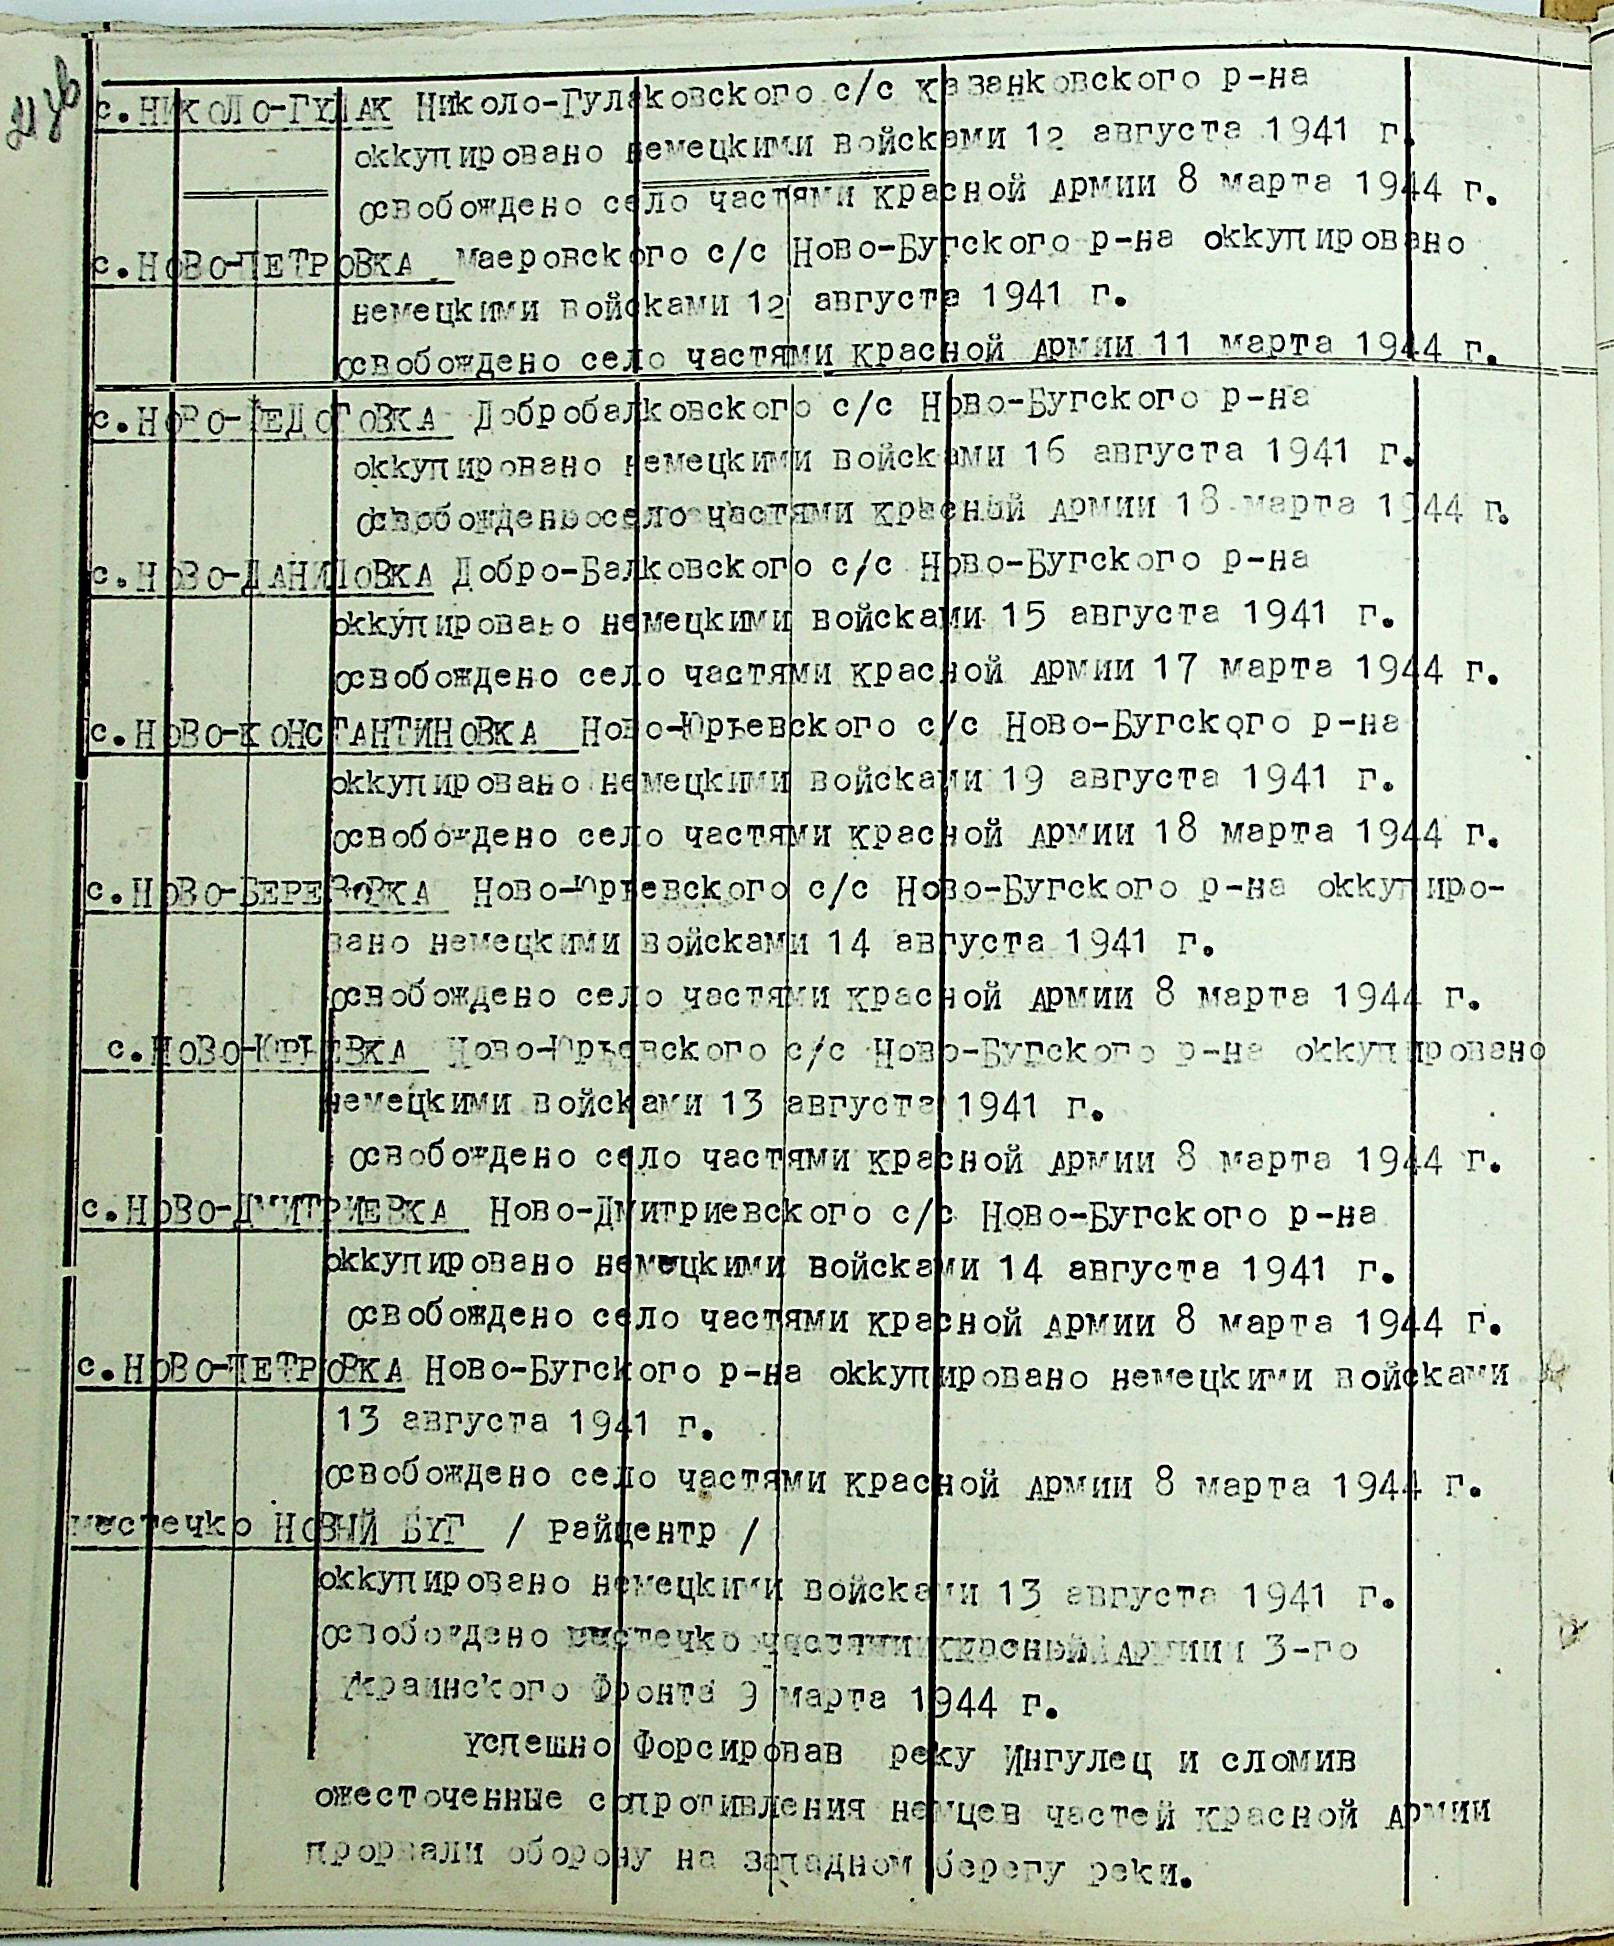 с.НИКОЛО-ГУЛАК Николо-Гулаковского с/с казанковского р-на
оккупировано немецкими войсками 12 августа 1941 г.
освобождено село частями красной армии 8 марта 1944 г.
с.НОВО-ПЕТРОВКА маеровского с/с Ново-Бугского р-на оккупировано
немецкими войсками 12 августа 1941 г.
освобождено село частями красной армии 11 марта 1944 г.
Добробалковского с/с Ново-Бугского р-на
оккупировано немецкими войсками 16 августа 1941 г.
освобождено село частями красной армии 18 марта 1944 г.
с.НОВО-ДАНИЛОВКА Добро-Балковского с/с Ново-Бугского р-на
оккупировано немецкими войсками 15 августа 1941 г.
освобождено село частями красной армии 17 марта 1944 г.
с.НОВО-КОНСТАНТИНОВКА Ново-Юрьевского с/с Ново-Бугского р-на
оккупировано немецкими войсками 19 августа 1941 г.
освобождено село частями красной армии 18 марта 1944 г.
с.НОВО-БЕРЕЗОВКА Ново-Юрьевского с/с Ново-Бугского р-на оккупиро-
вано немецкими войсками 14 августа 1941 г.
освобождено село частями красной армии 8 марта 1944 г.
с.НОВО-ЮРЬЕВКА Ново-Юрьевского с/с Ново-Бугского р-на оккупировано
немецкими войсками 13 августа 1941 г.
освобождено село частями красной армии 8 марта 1944 г.
с.НОВО-ДМИТРИЕВКА Ново-Дмитриевского с/с Ново-Бугского р-на
оккупировано немецкими войсками 14 августа 1941 г.
освобождено село частями красной армии 8 марта 1944 г.
с.НОВО-ПЕТРОВКА Ново-Бугского р-на оккупировано немецкими войсками
13 августа 1941 г.
освобождено село частями красной армии 8 марта 1944 г.
местечко НОВЫЙ БУГ / райцентр /
оккупировано немецкими войсками 13 августа 1941 г.
освобождено местечко частями красной армии 3-го
Украинского Фронта 9 марта 1944 г.
Успешно Форсировав реку Ингулец и сломив
ожесточенные сопротивления немцев частей красной армии
прорвали оборону на западном берегу реки.